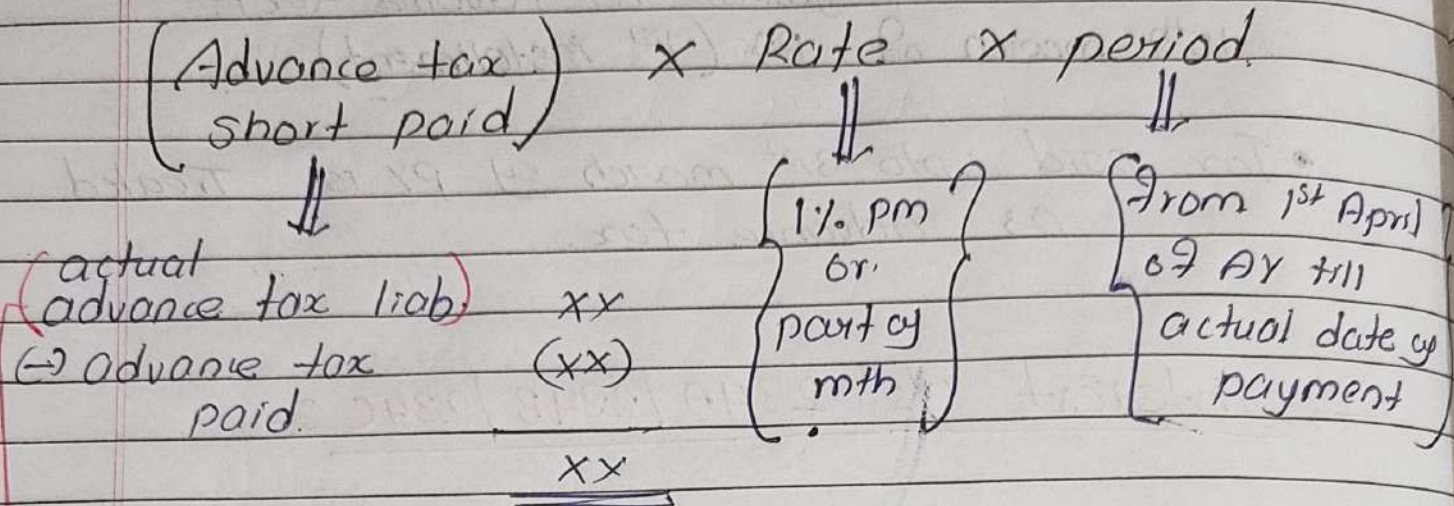 (Advance tax short paid) x Rate x period.
actual
(advance tax liab) xx
(-) advance tax (xx)
paid.
xx
1% pm
or.
part of
mth
From 1st April
of AY till
actual date of
payment